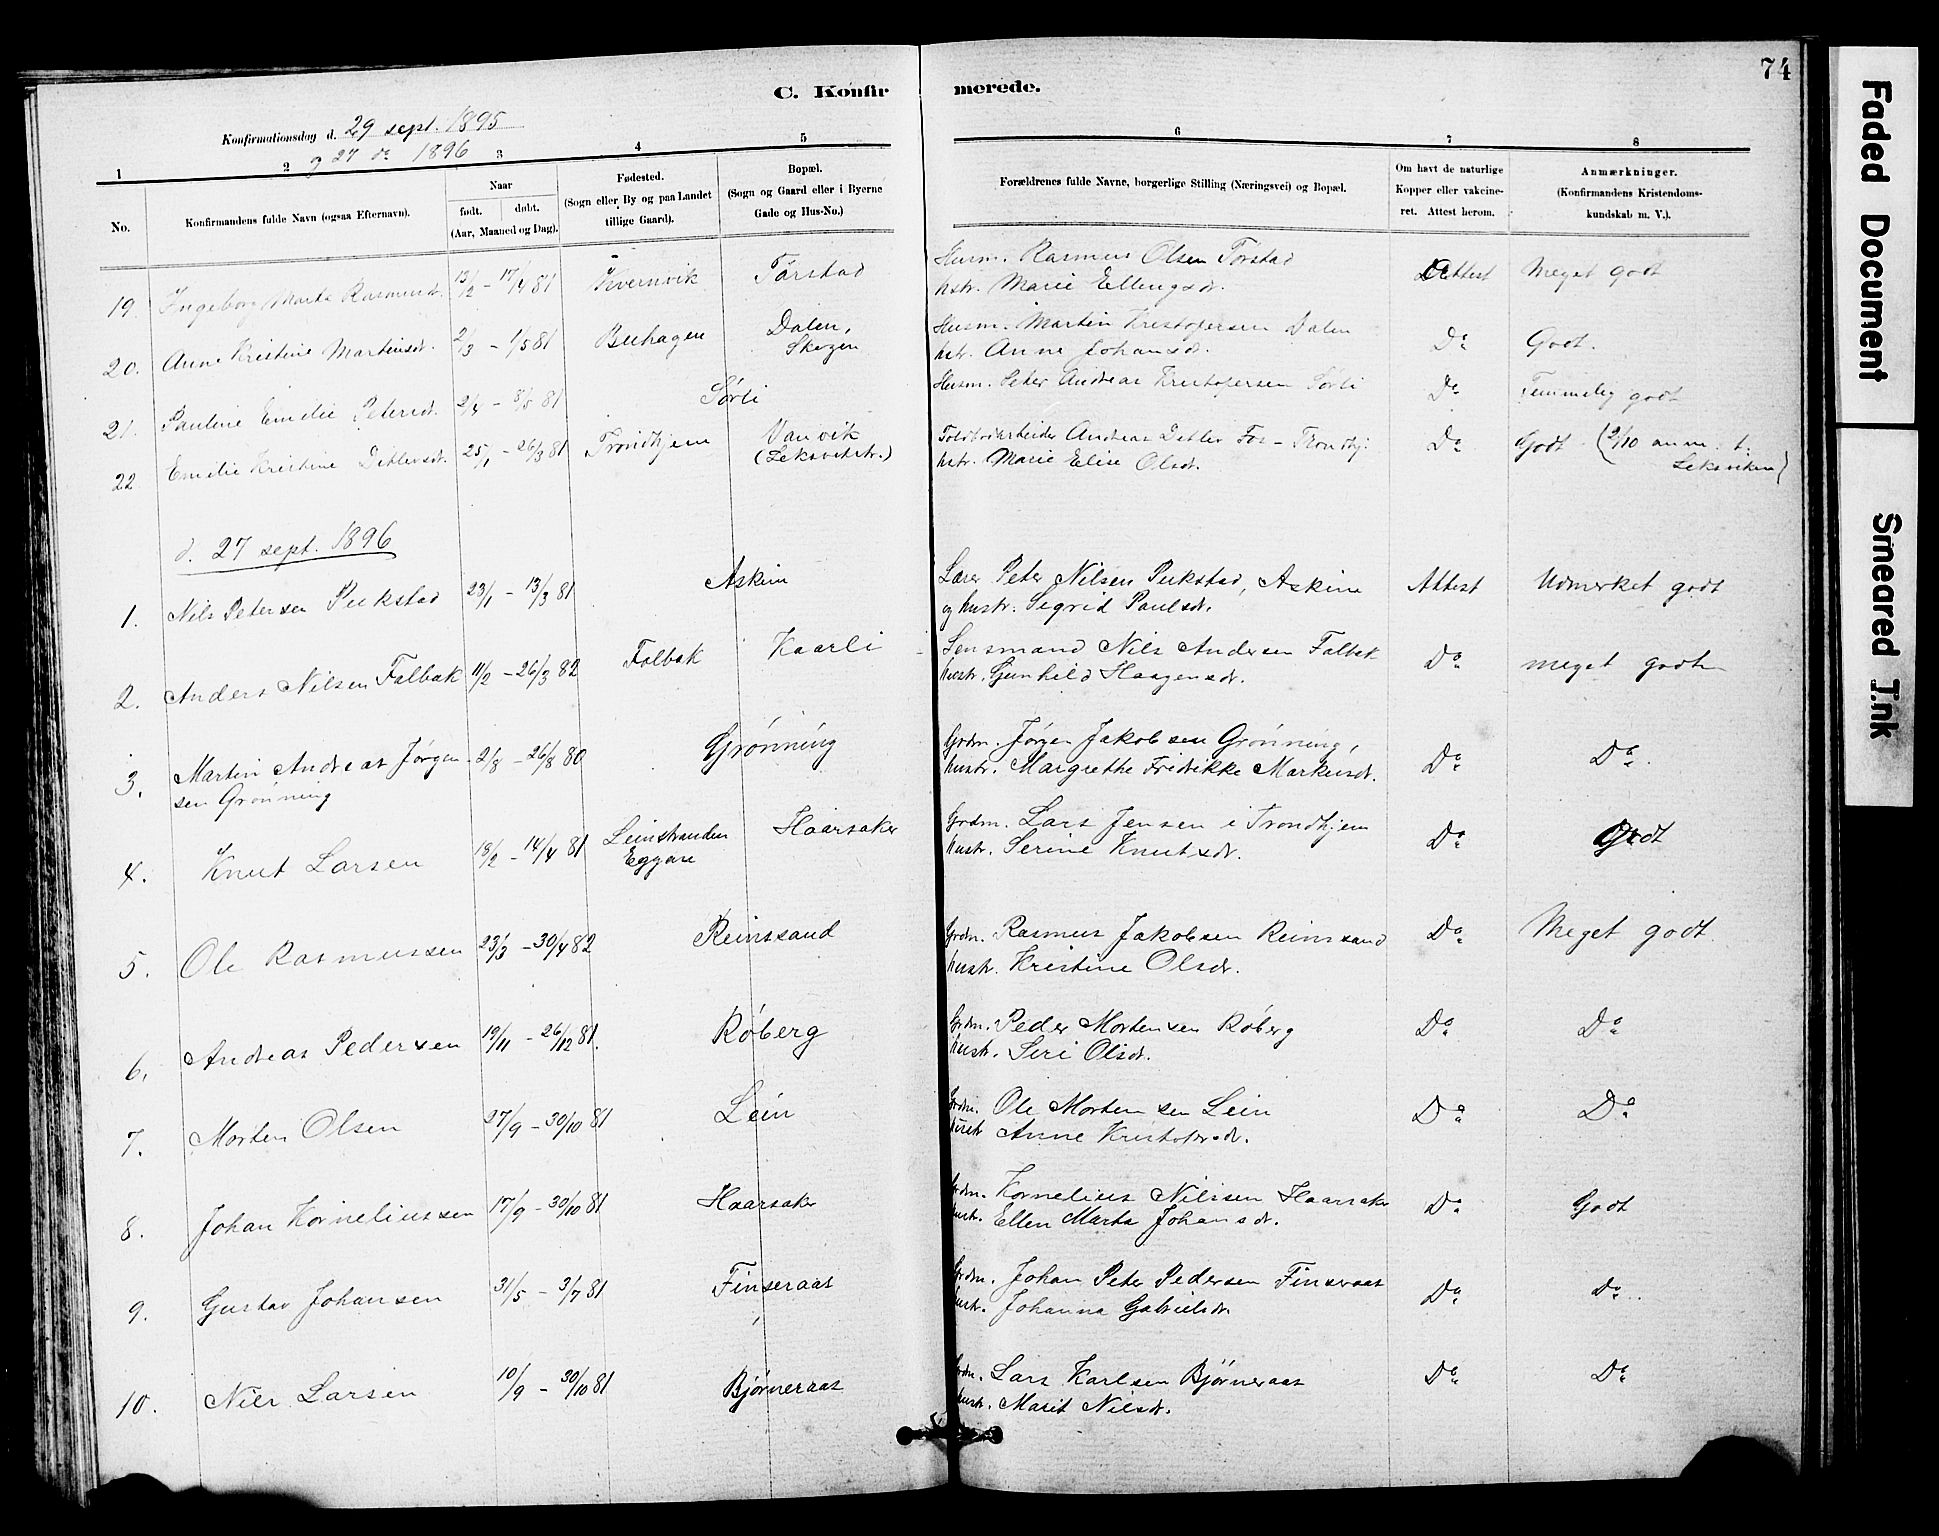 74
C. Konfirmerede.
Konfirmationsdag d. 29 sept. 1895
og 27 do 1896
1 2 3 4 5 6 7 8
No.
Konfirmandens fulde Navn (ogsaa Efternavn).
Naar
født. døbt.
(Aar, Maaned og Dag).
Fødested.
(Sogn eller By og paa Landet
tillige Gaard).
Bopæl.
(Sogn og Gaard eller i Byerne
Gade og Hus-No.)
Forældrenes fulde Navne, borgerlige Stilling (Næringsvei) og Bopæl.
Om havt de naturlige
Kopper eller vakcine-
ret. Attest herom.
Anmærkninger.
(Konfirmandens Kristendoms-
kundskab m. V.).
19. Ingeborg Marta Rasmusdr. 13/2 - 17/4 81 Kvernvik Törstad Husm. Rasmus Olsen Torstad Attest Meget godt
hstr. Marie Ellingsdr.
20. Anne Kristine Martinsdr. 2/3 - 1/5 81 Buhagen Dalen, Husm. Martin Kristofersen Dalen Do Godt.
Skogen hstr. Anne Johansdr.
21. Pauline Emelie Petersdr. 2/4 - 8/5 81 Sørli Husm. Peter Andreas Kristofersen Sørli Do Temmelig godt
22. Emelie Kristine Detlevsdr. 25/1 - 26/3 81 Trondhjem Vanvik Andreas Detlev Fos - Trondhj. Do Godt. (2/10 anm. t.
(Leksvikstr.) hstr. Marie Elise Olsdr. Leksviken)
d. 27 sept. 1896
1. Nils Petersen Pukstad 23/1 - 13/3 81 Askim Lærer Peter Nilsen Pukstad, Askim Attest Udmerket godt
og hustr. Sigrid Paulsdr.
2. Anders Nilsen Falbak 11/2 - 26/3 82 Falbak Kaarli Lensmand Nils Andersen Falbak Do meget godt
hustr. Gunhild Haagensdr.
3. Martin Andreas Jørgen- 2/8 - 26/8 80 Grönning Grdm. Jørgen Jakobsen Grönning, Do Do
sen Grönning hustr. Margrethe Fredrikke Markusdr.
4. Knut Larsen 18/2 - 14/4 81 Leinstranden Haarsaker Grdm. Lars Jensen i Trondhjem Do Godt
Eggan hustr. Serine Knutsdr.
5. Ole Rasmussen 23/3 - 30/4 82 Reinssand Grdm. Rasmus Jakobsen Reinssand Do Meget godt
hustr. Kristine Olsdr.
6. Andreas Pedersen 19/11 - 26/12 81. Røberg Grdm. Peder Mortensen Røberg Do Do
hustr. Siri Olsdr.
7. Morten Olsen 27/9 - 30/10 81 Lein Grdm. Ole Mortensen Lein Do Do
hustr. Anne Kristofersdr.
8. Johan Korneliussen 17/9 - 30/10 81 Haarsaker Grdm. Kornelius Nilssen Haarsaker Do Godt
hustr. Ellen Marta Johansdr.
9. Gustav Johansen 31/5 - 3/7 81 Finseraas Grdm. Johan Peter Pedersen Finseraas Do do
hustr. Johanna Gabrielsdr.
10. Nils Larsen 10/9 - 30/10 81 Bjørneraas Grdm. Lars Karlsen Bjørneraas Do Do
hustr. Marit Nilsdr.
Faded Document
Smeared Ink